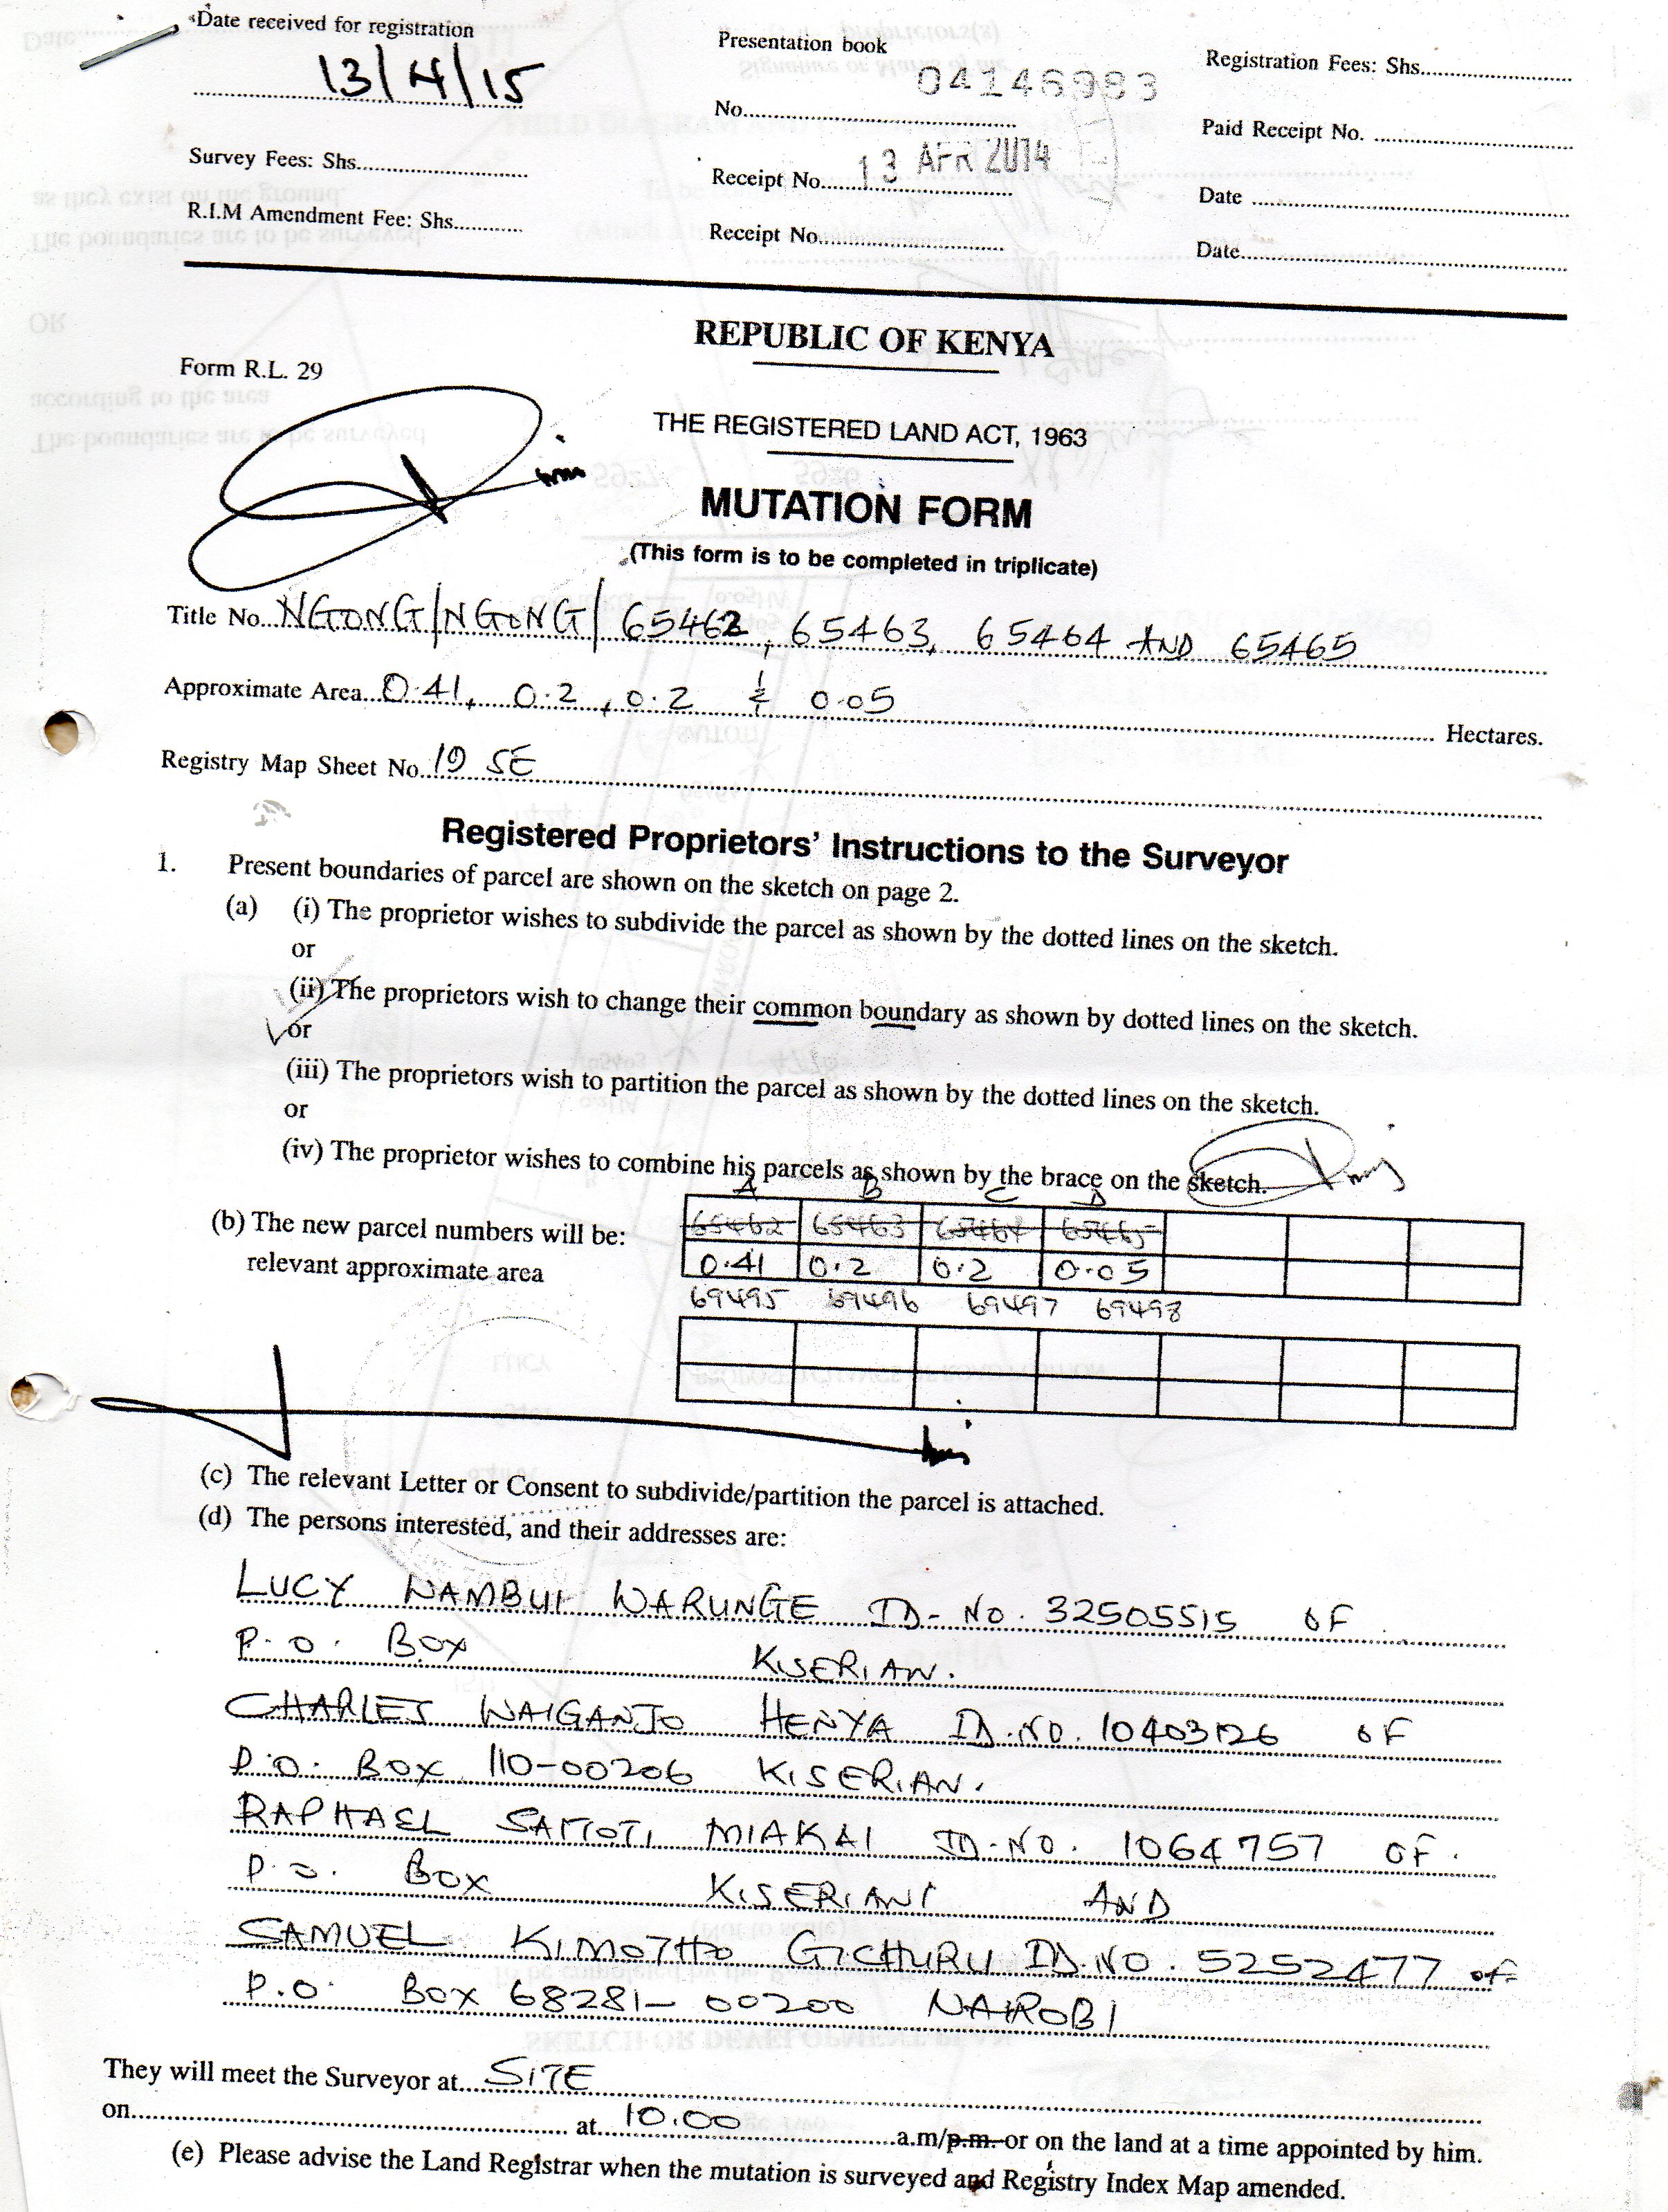 Date received for registration
13/4/15
Presentation book
04146983
No.
Registration Fees: Shs.
Paid Receipt No.
Survey Fees: Shs.
Receipt No. 13 APR 2014
Date
R.I.M Amendment Fee: Shs.
Receipt No.
Date
REPUBLIC OF KENYA
Form R.L. 29
THE REGISTERED LAND ACT, 1963
MUTATION FORM
(This form is to be completed in triplicate)
Title No. NGONG/NGONG/ 65462, 65463, 65464 AND 65465
Approximate Area 0.41, 0.2, 0.2 & 0.05 Hectares.
Registry Map Sheet No. 19 SE
Registered Proprietors' Instructions to the Surveyor
1. Present boundaries of parcel are shown on the sketch on page 2.
(a) (i) The proprietor wishes to subdivide the parcel as shown by the dotted lines on the sketch.
or
(ii) The proprietors wish to change their common boundary as shown by dotted lines on the sketch.
or
(iii) The proprietors wish to partition the parcel as shown by the dotted lines on the sketch.
or
(iv) The proprietor wishes to combine his parcels as shown by the brace on the sketch.
A B C D
(b) The new parcel numbers will be: 65462 65463 65464 65465
relevant approximate area 0.41 0.2 0.2 0.05
69495 69496 69497 69498
(c) The relevant Letter or Consent to subdivide/partition the parcel is attached.
(d) The persons interested, and their addresses are:
LUCY WAMBUI WARUNGE ID-NO. 32505515 OF
P.O. BOX KISERIAN.
CHARLES WAIGANJO HENYA ID.NO. 10403126 OF
P.O. BOX 110-00206 KISERIAN.
RAPHAEL SAITOTI MIAKAI ID.NO. 1064757 OF
P.O. BOX KISERIAN AND
SAMUEL KIMOTHO GICHURU ID.NO. 5252477 of
P.O. BOX 68281-00200 NAIROBI
They will meet the Surveyor at SITE
on at 10.00 a.m/p.m. or on the land at a time appointed by him.
(e) Please advise the Land Registrar when the mutation is surveyed and Registry Index Map amended.